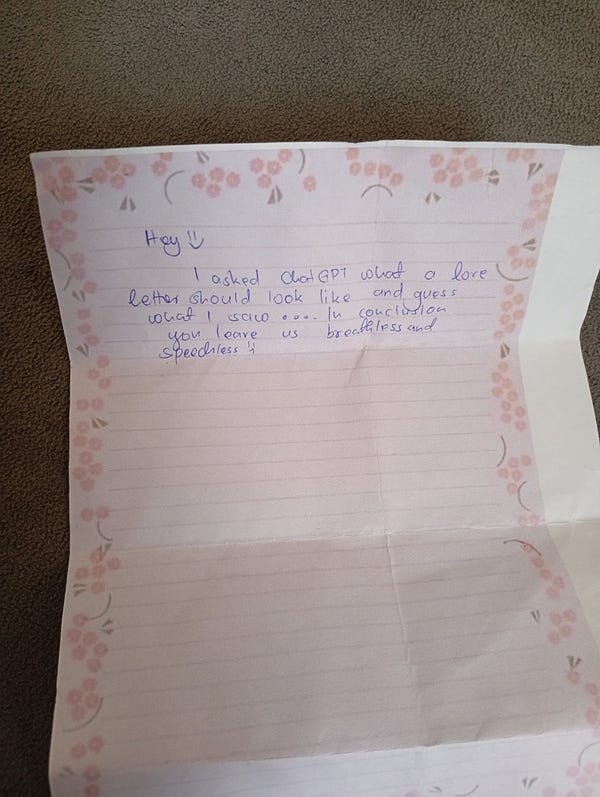 Hey !!
I asked ChatGPT what a love
letter should look like and guess
what I saw .... In conclusion
you leave us breathless and
speechless !!